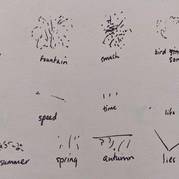 fountain smash bird going
speed time like
summer spring autumn lies